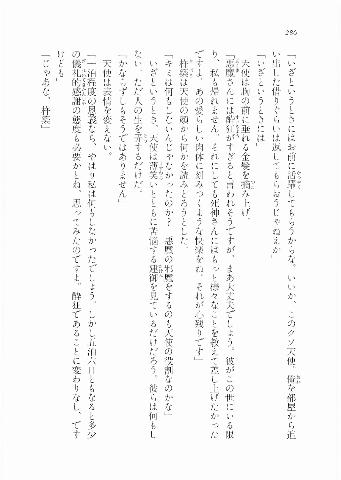 286
「いざというときにはお前に活躍してもらうからな。いいか、このクソ天使。俺を部屋から追
い出した借りぐらいは返してもらおうじゃねぇか」
「いざというときには」
天使は胸の前に垂れる金髪を摘み上げ、
「悪魔さんには酔狂がすぎると言われそうですが、まあ大丈夫でしょう。彼がこの世にいる限
り、私も帰れません。それにしても死神さんにはもっと様々なことを教えて差し上げたかった
ですよ。あの愛らしい肉体に刻みつくような快楽をね。それが心残りです」
杵築は天使の顔から何かを読みとろうとした。
「キミは何もしないんじゃなかったのか？　悪魔の邪魔をするのも天使の役割なのかな」
いざというとき、天使は薄笑いとともに苦悩する建御を見ているだけだろう。彼らは何もし
ない。ただ人の生を許するだけだ。
「かならずしもそうではありません」
天使は表情を変えない。
「一泊程度の恩義なら、やはり私は何もしなかったでしょう。しかし五泊六日ともなると多少
の儀礼的感謝の態度も必要かとね、思ってみたのですよ。酔狂であることに変わりなし、です
けども」
「じゃあな、杵築」